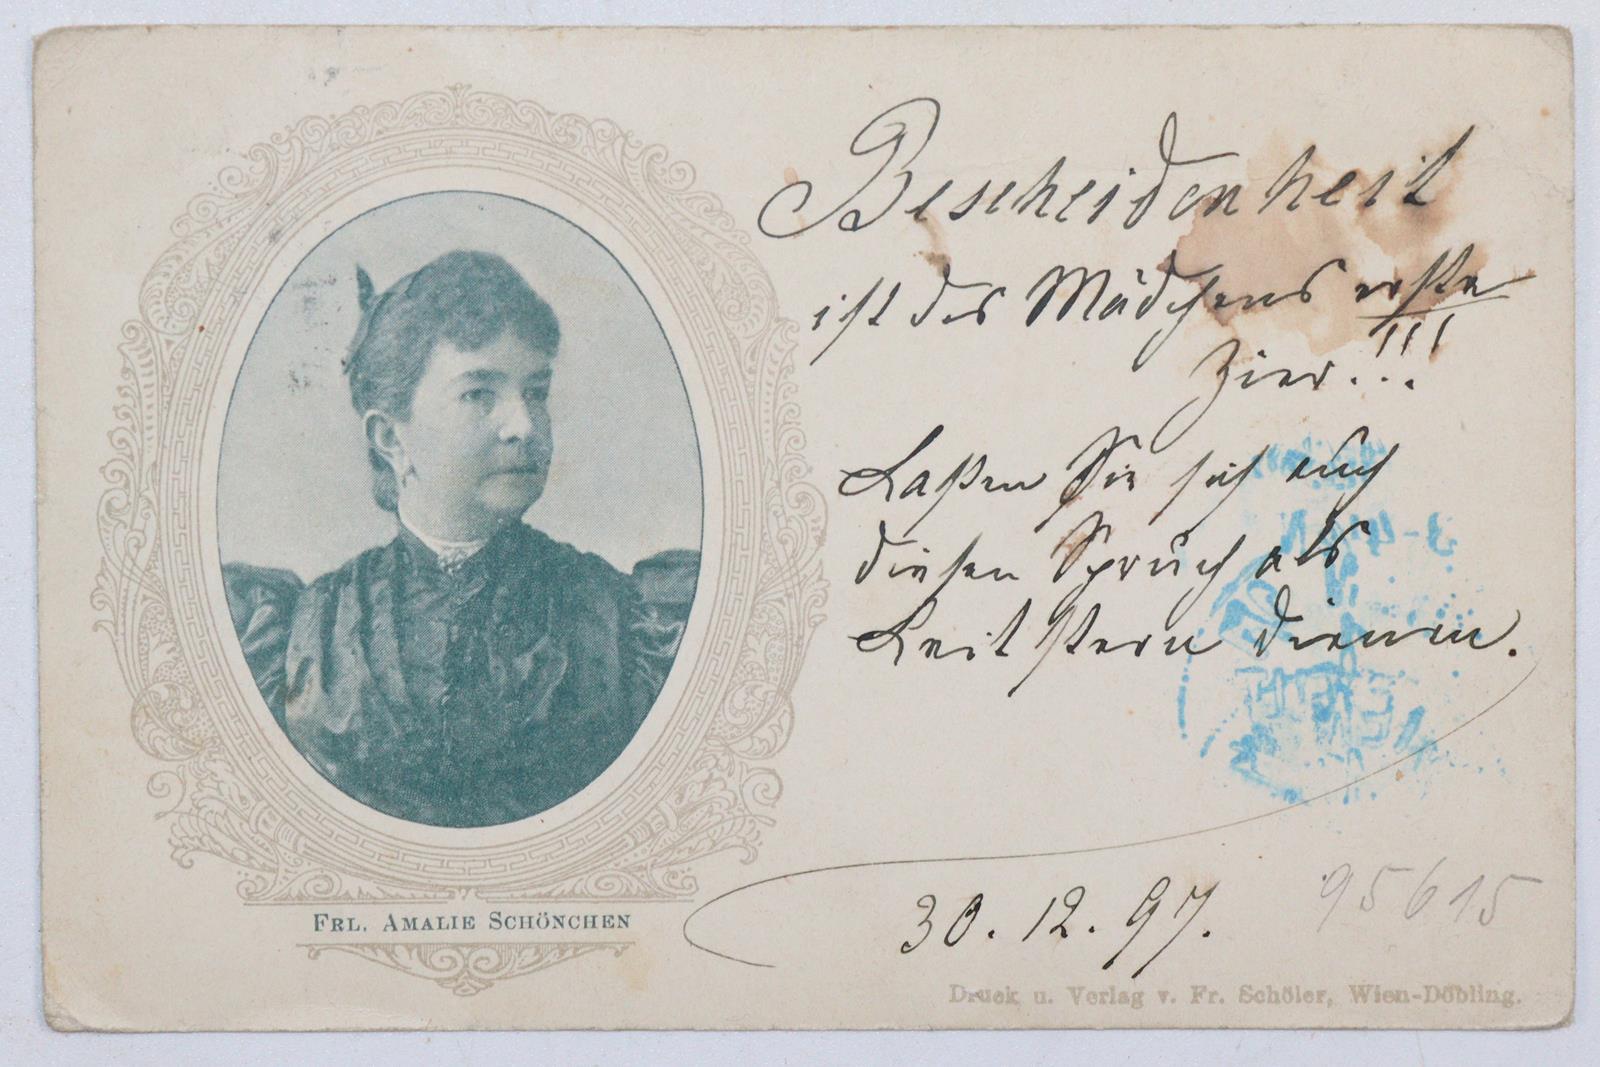 Bescheidenheit
ist des Mädchens erste
Zier!!!
Laßen Sie sich auch
diesen Spruch als
Leitstern dienen.
30. 12. 97.
95615
FRL. AMALIE SCHÖNCHEN
Druck u. Verlag v. Fr. Schöler, Wien-Döbling.